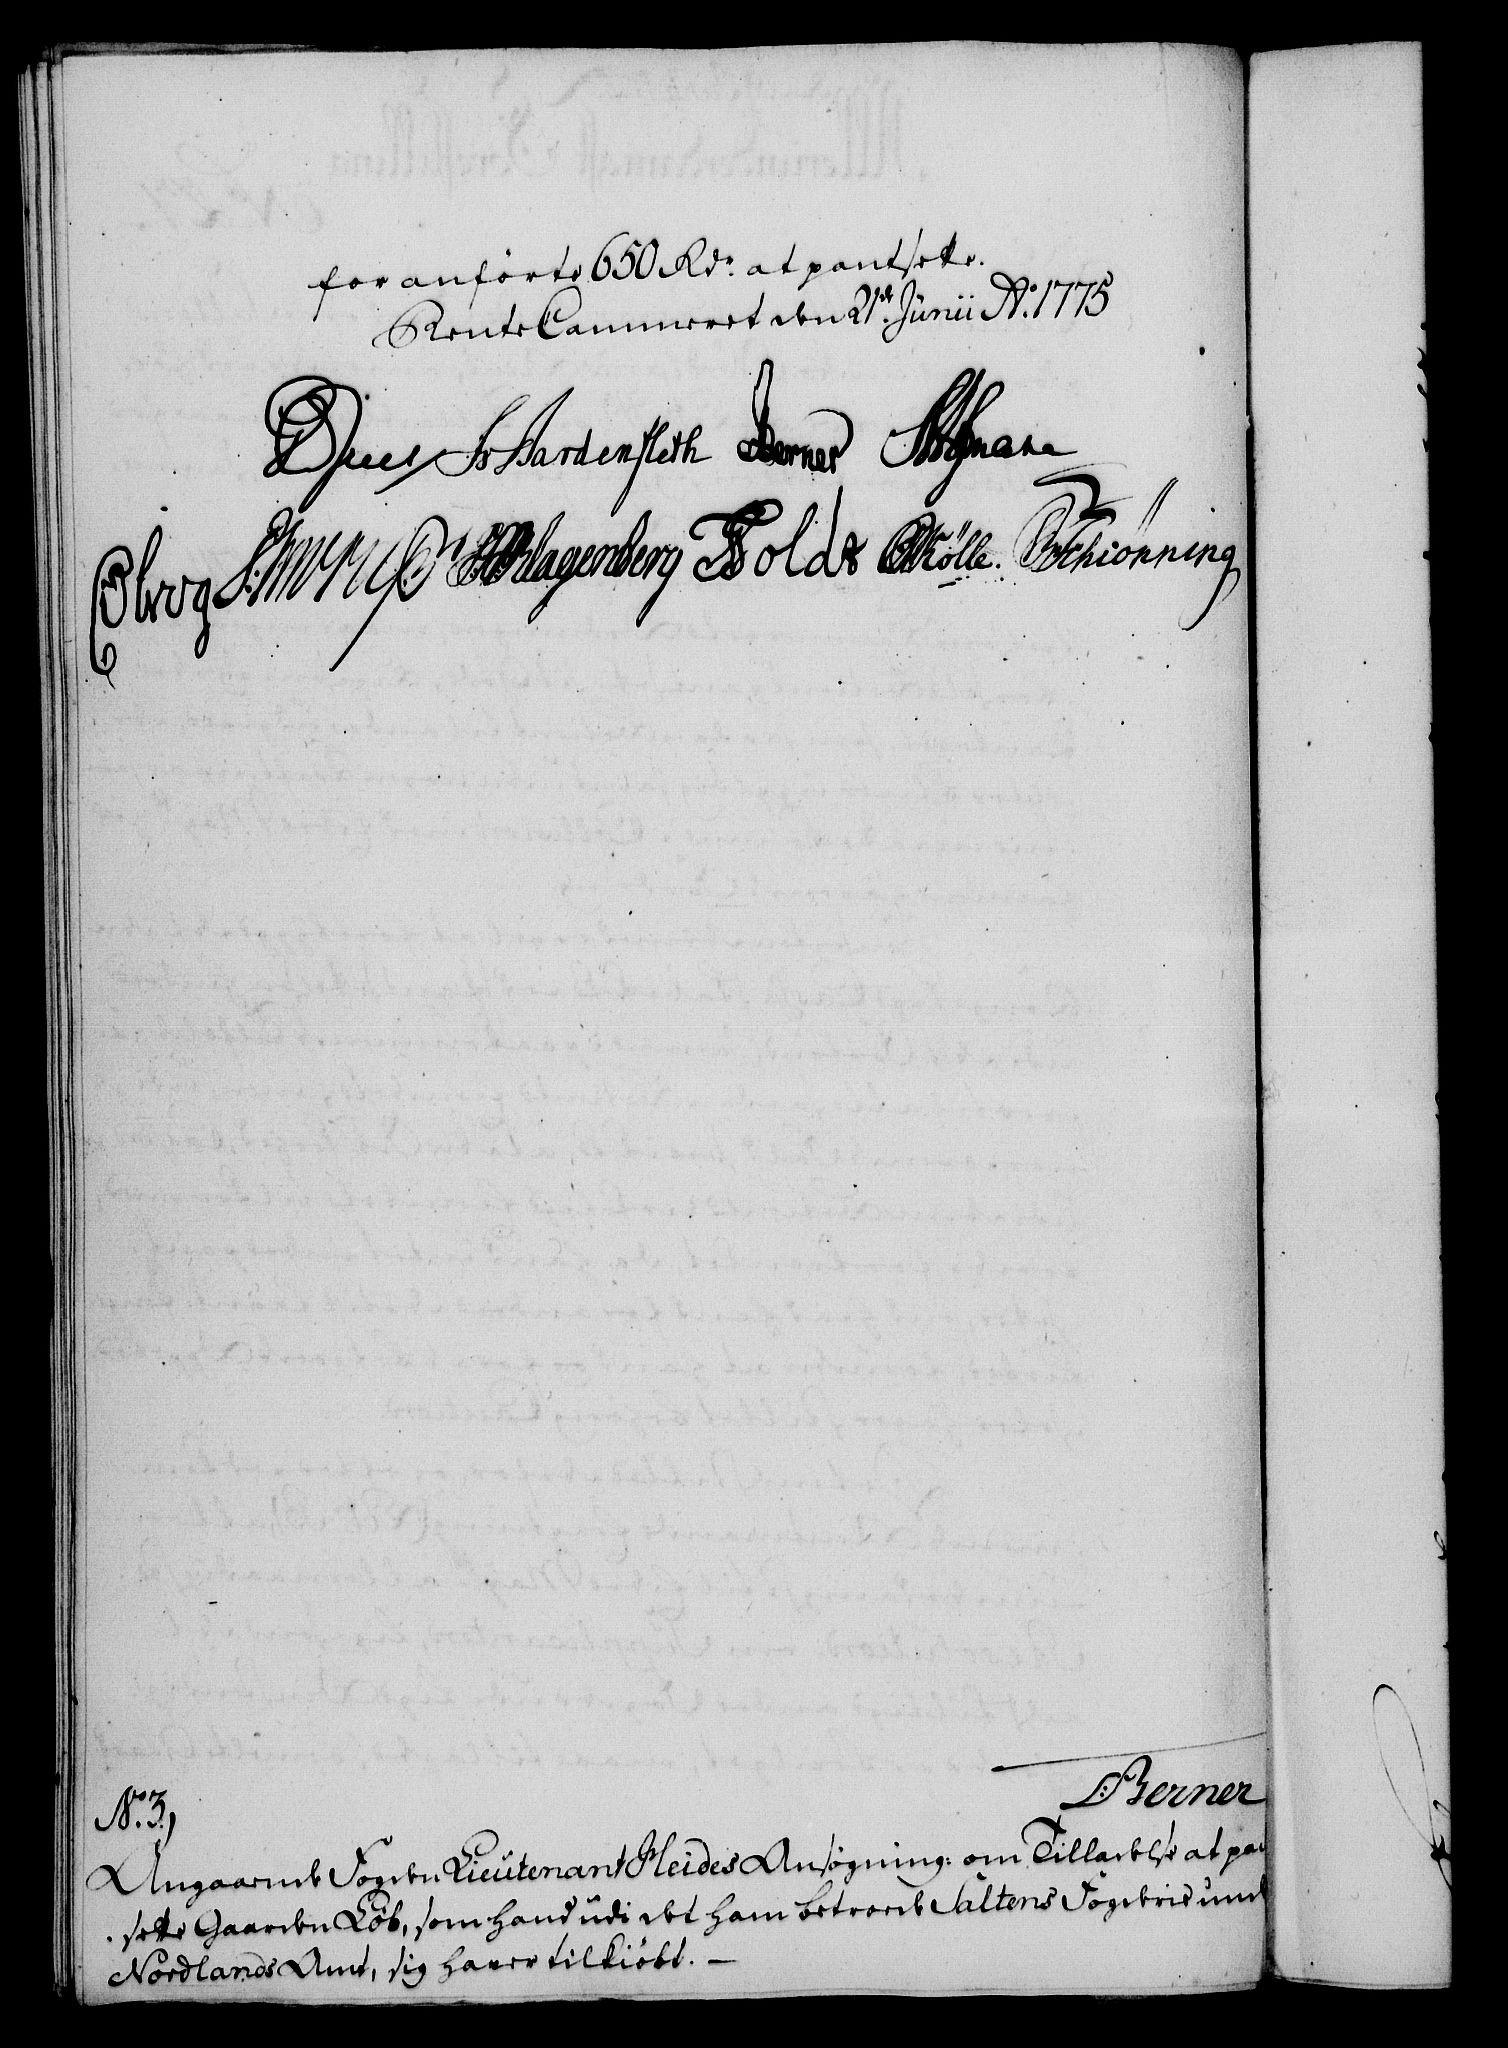 for anförte 650 Rdr. at pantsette.
Rente Cammeret den 21de Junii Ao. 1775
Hardenfleth Berner
Obrog Klagenberg Holdt Kölle. Schiönning
Berner
No. 3,
Angaaende Fogden Lieutenant Heides Ansøgning: om Tilladelse at pan
sette Gaarden Löb, som hand udi det ham betroede Saltens Fogderie und
Nordlands Amt, sig haver tilkiöbt. —